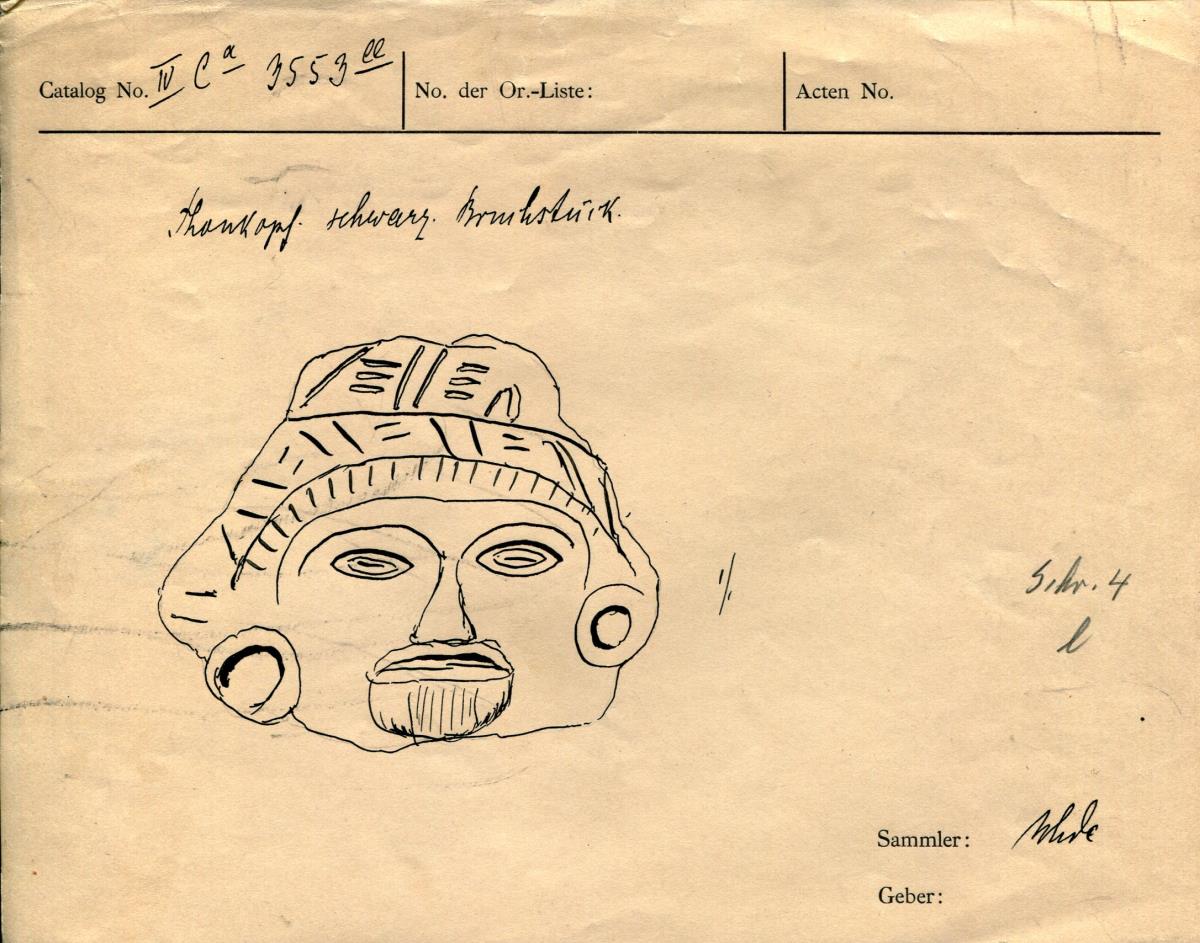 Catalog No. IV Ca 3553 ll
No. der Or.-Liste:
Acten No.
Thonkopf. schwarz. Bruchstück.
1/1
Schr. 4
l
Sammler: Uhde
Geber: